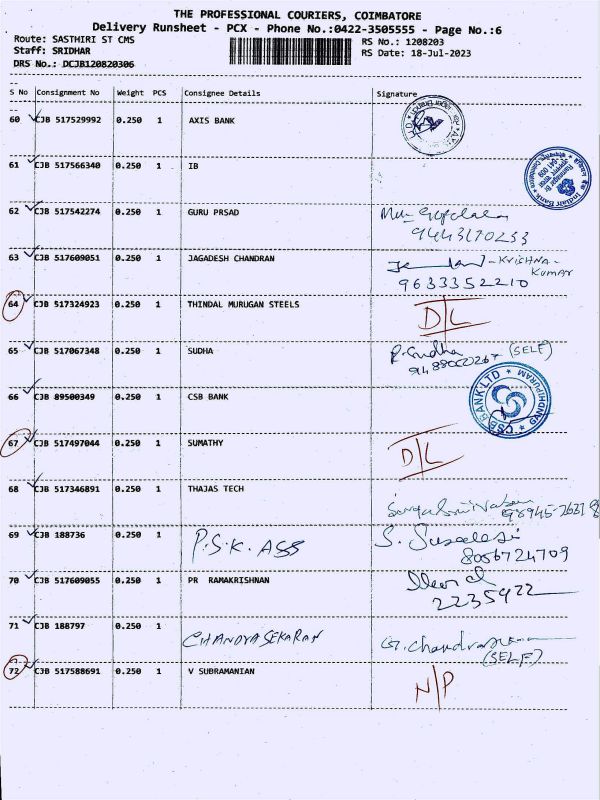 THE PROFESSIONAL COURIERS, COIMBATORE
Delivery Runsheet - PCX - Phone No.:0422-3505555 - Page No.:6
Route: SASTHIRI ST CMS RS No.: 1208203
Staff: SRIDHAR RS Date: 18-Jul-2023
DRS No.: DCJB120820306
S No Consignment No Weight PCS Consignee Details Signature
60 CJB 517529992 0.250 1 AXIS BANK
61 CJB 517566340 0.250 1 IB
62 CJB 517542274 0.250 1 GURU PRSAD
9443170233
63 CJB 517609051 0.250 1 JAGADESH CHANDRAN - KRISHNA - KUMAR
9633352210
64 CJB 517324923 0.250 1 THINDAL MURUGAN STEELS D/L
65 CJB 517067348 0.250 1 SUDHA P. Sudha (SELF)
66 CJB 89500349 0.250 1 CSB BANK CSB BANK LTD GANDHIPURAM
67 CJB 517497044 0.250 1 SUMATHY D/L
68 CJB 517346891 0.250 1 THAJAS TECH
69 CJB 188736 0.250 1 P.S.K. ASS S.
8056724709
70 CJB 517609055 0.250 1 PR RAMAKRISHNAN
2235922
71 CJB 188797 0.250 1 CHANDRASEKARAN
(SELF)
72 CJB 517588691 0.250 1 V SUBRAMANIAN N/P